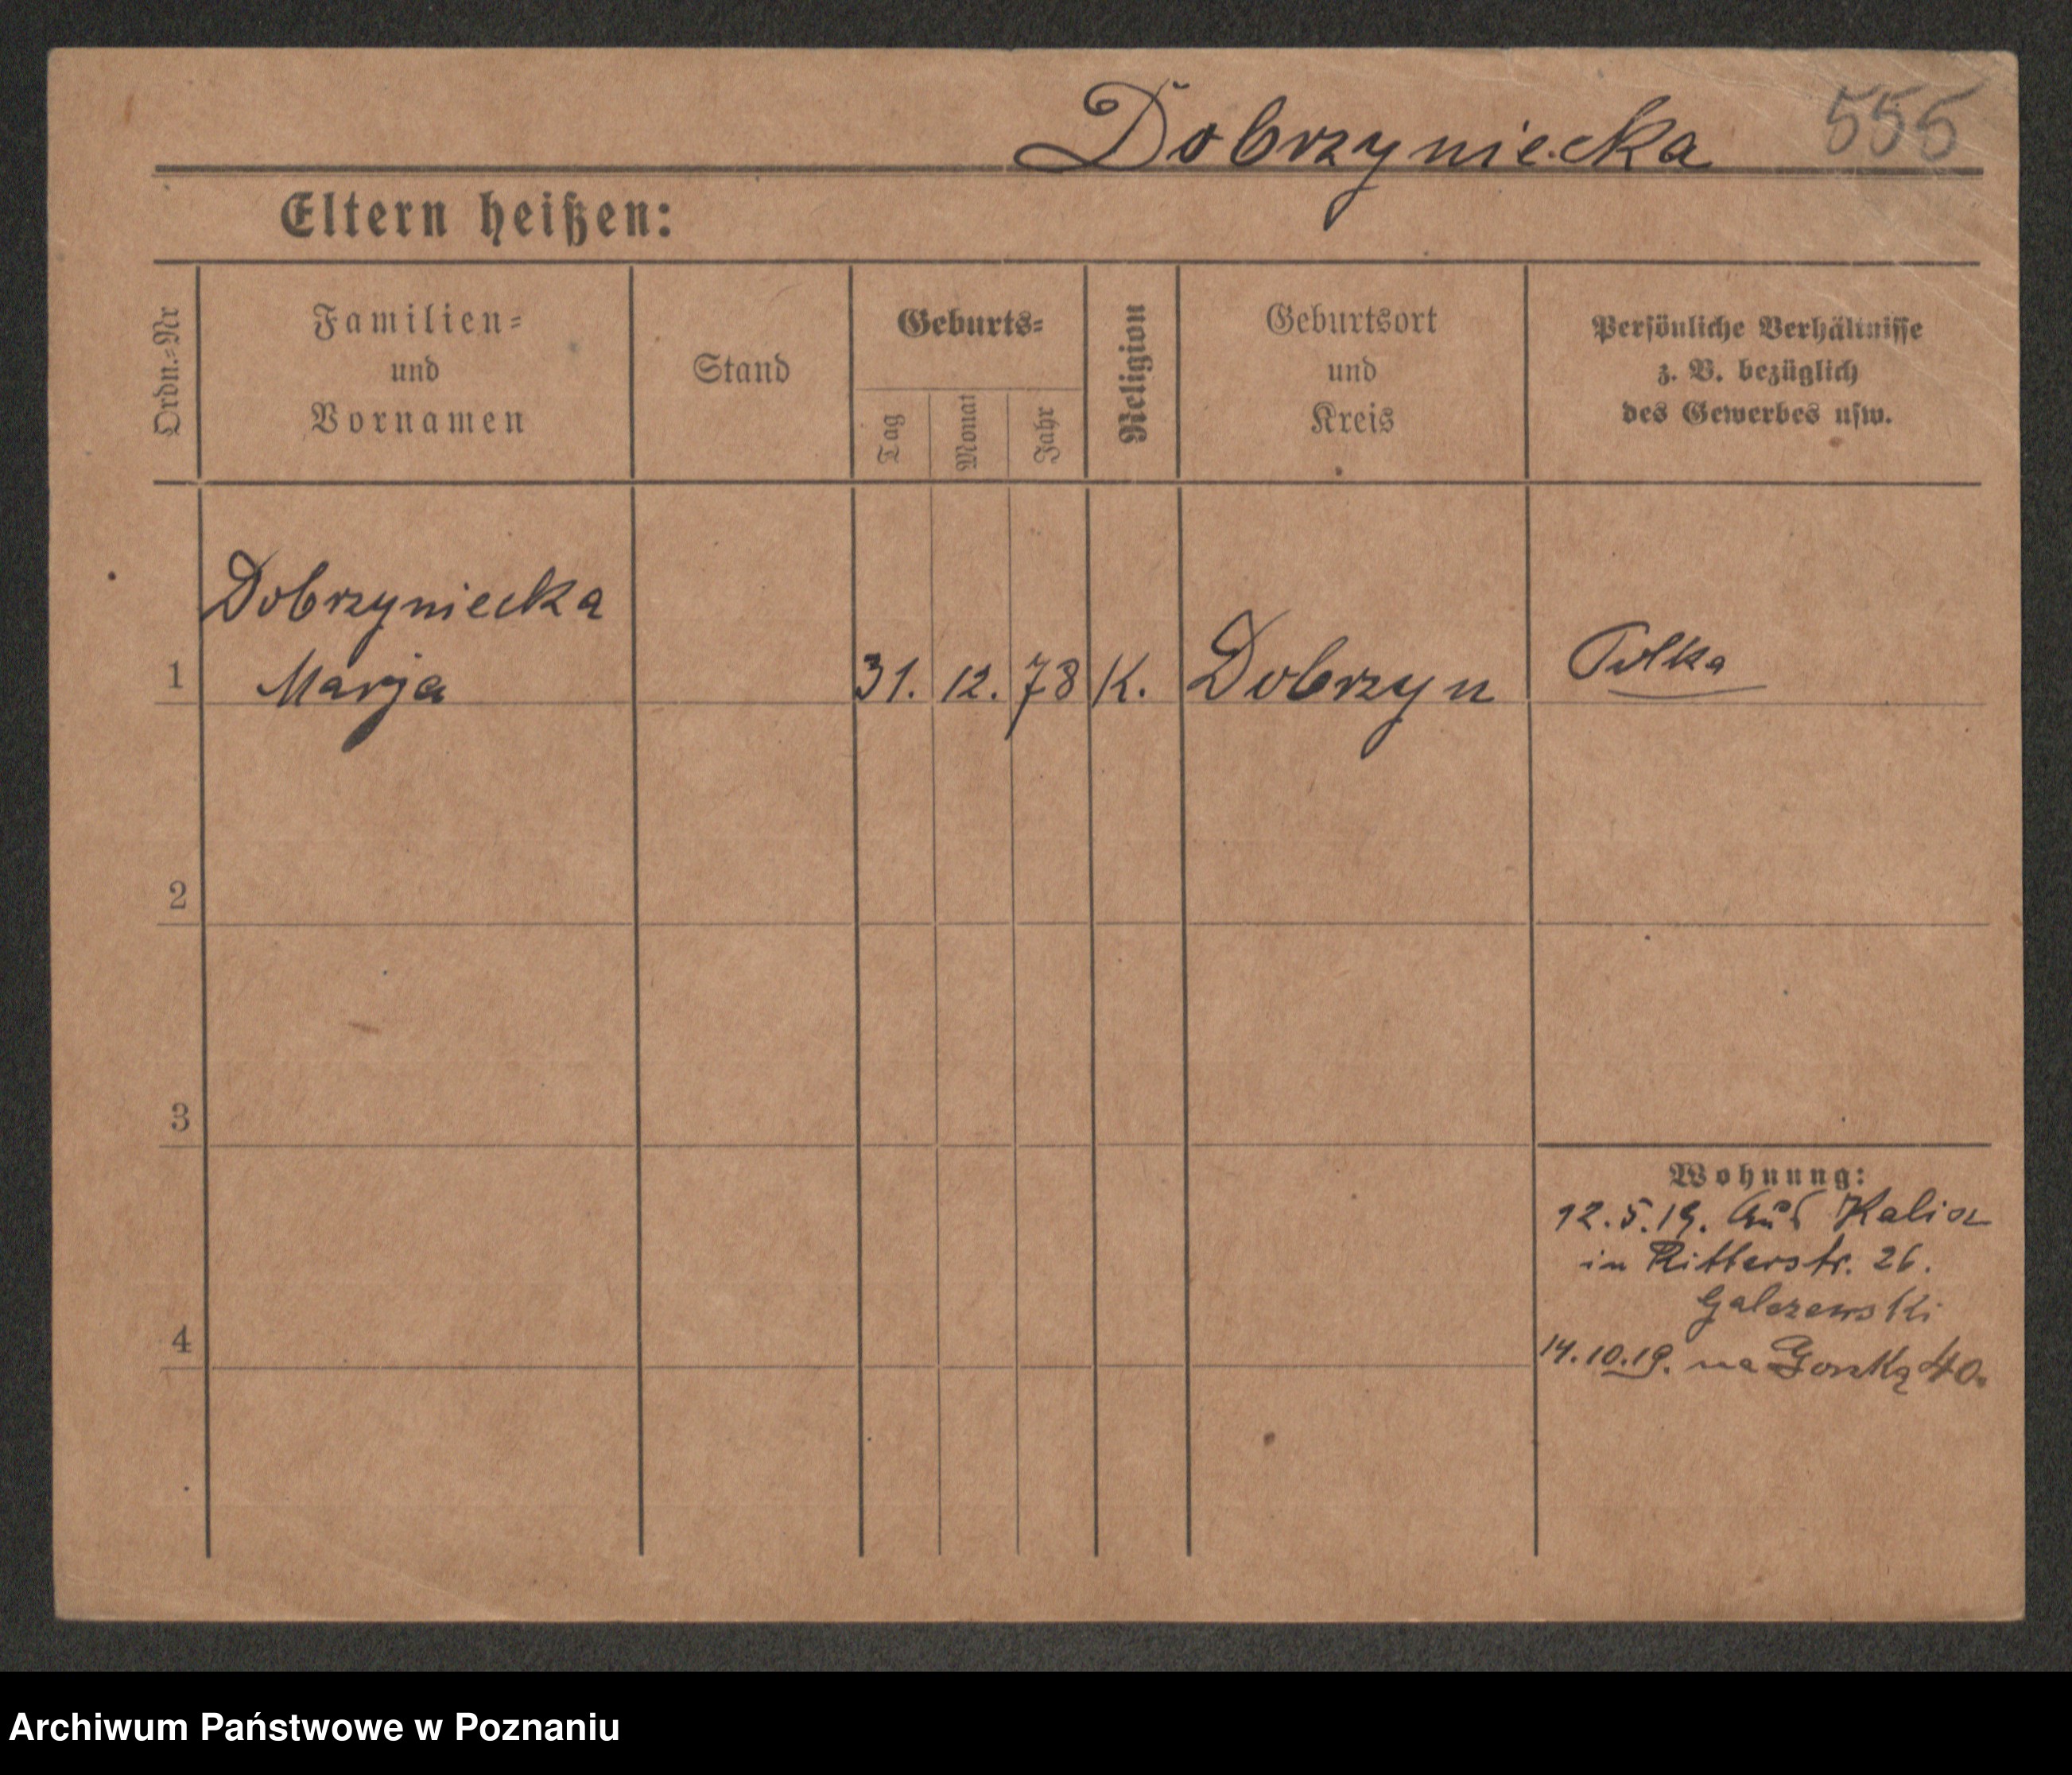 Dobrzyniecka 555
Eltern heißen:
Ordn.=Nr
Familien=
und
Vornamen
Stand
Geburts=
Tag
Monat
Jahr
Religion
Geburtsort
und
Kreis
Persönliche Verhältnisse
z. B. bezüglich
des Gewerbes usw.
Dobrzyniecka
1 Marja 31. 12. 78 K. Dobrzyn Polka
2
3
Wohnung:
12.5.19. aus Kalisz
in Ritterstr. 26.
Galezewski
4
14.10.19. na 40.
Archiwum Państwowe w Poznaniu